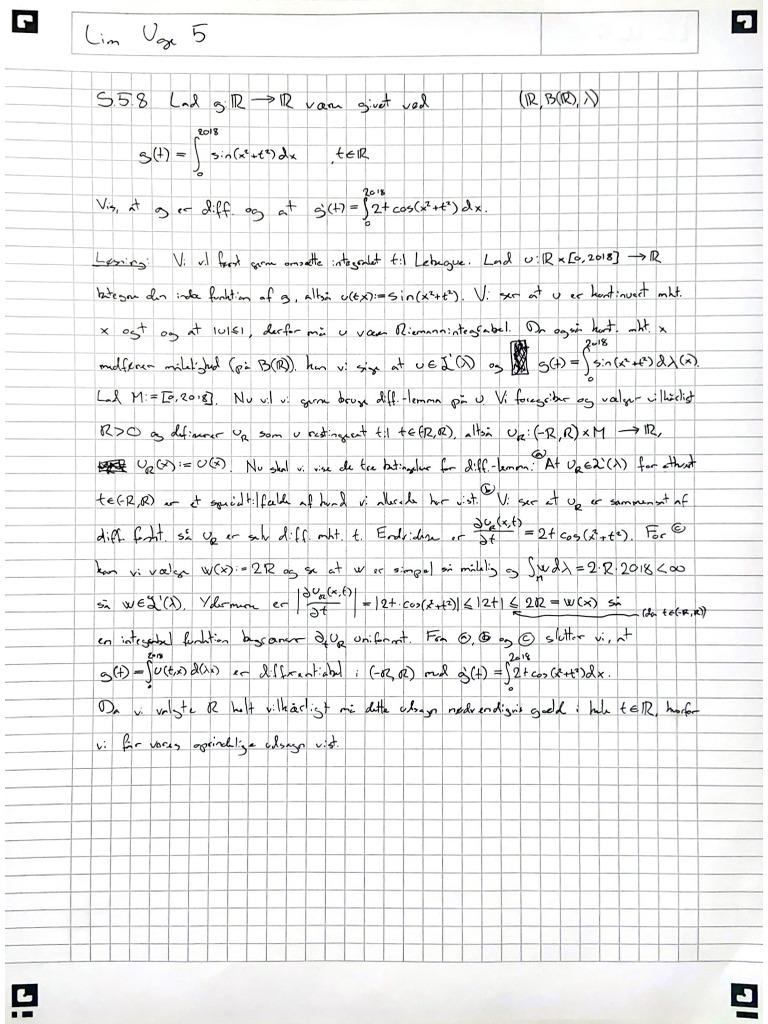 Lim Uge 5
S.5.8 Lad g:ℝ → ℝ være givet ved (ℝ, B(ℝ), λ)
g(t) = ∫₀²⁰¹⁸ sin(x²+t²) dx , t∈ℝ
Vis, at g er diff. og at ġ(t) = ∫₀²⁰¹⁸ 2t cos(x²+t²) dx.
Løsning: Vi vil først gerne omsætte integralet til Lebegue. Lad u:ℝ×[0,2018] → ℝ
betegne den indre funktion af g, altså u(t,x):=sin(x²+t²). Vi ser at u er kontinuert mht.
x og t og at |u|≤1, derfor må u være Riemannintegrabel. Da også kont. mht. x
medfører målelighed (på B(ℝ)), kan vi sige at u∈L¹(λ) og g(t) = ∫₀²⁰¹⁸ sin(x²+t²) dλ(x).
Lad M:=[0,2018]. Nu vil vi gerne bruge diff.-lemma på u. Vi foregriber og vælger vilkårligt
R>0 og definerer u_R som u restingeret til t∈(-R,R), altså u_R:(-R,R)×M → ℝ,
u_R(x):=u(x). Nu skal vi vise de tre betingelser for diff.-lemma: ⓐ At u_R∈L¹(λ) for ethvert
t∈(-R,R) er et specialtilfælde af hvad vi allerede har vist. ⓑ Vi ser at u_R er sammensat af
diff. funkt. så u_R er selv diff. mht. t. Endvidere er ∂u_R(x,t)/∂t = 2t cos(x²+t²). For ⓒ
kan vi vælge w(x):=2R og se at w er simpel så målelig og ∫_M w dλ = 2·R·2018 < ∞
så w∈L¹(λ). Ydermere er |∂u_R(x,t)/∂t| = |2t·cos(x²+t²)| ≤ |2t| ≤ 2R = w(x) så
(da t∈(-R,R))
en integrabel funktion begrænser ∂_t u_R uniformt. Fra ⓐ, ⓑ og ⓒ slutter vi, at
g(t) = ∫₀²⁰¹⁸ u(t,x) d(λx) er differentiabel i (-R,R) med ġ(t) = ∫₀²⁰¹⁸ 2t cos(x²+t²) dx.
Da vi valgte R helt vilkårligt må dette udsagn nødvendigvis gælde i hele t∈ℝ, hvorfor
vi får vores oprindelige udsagn vist.